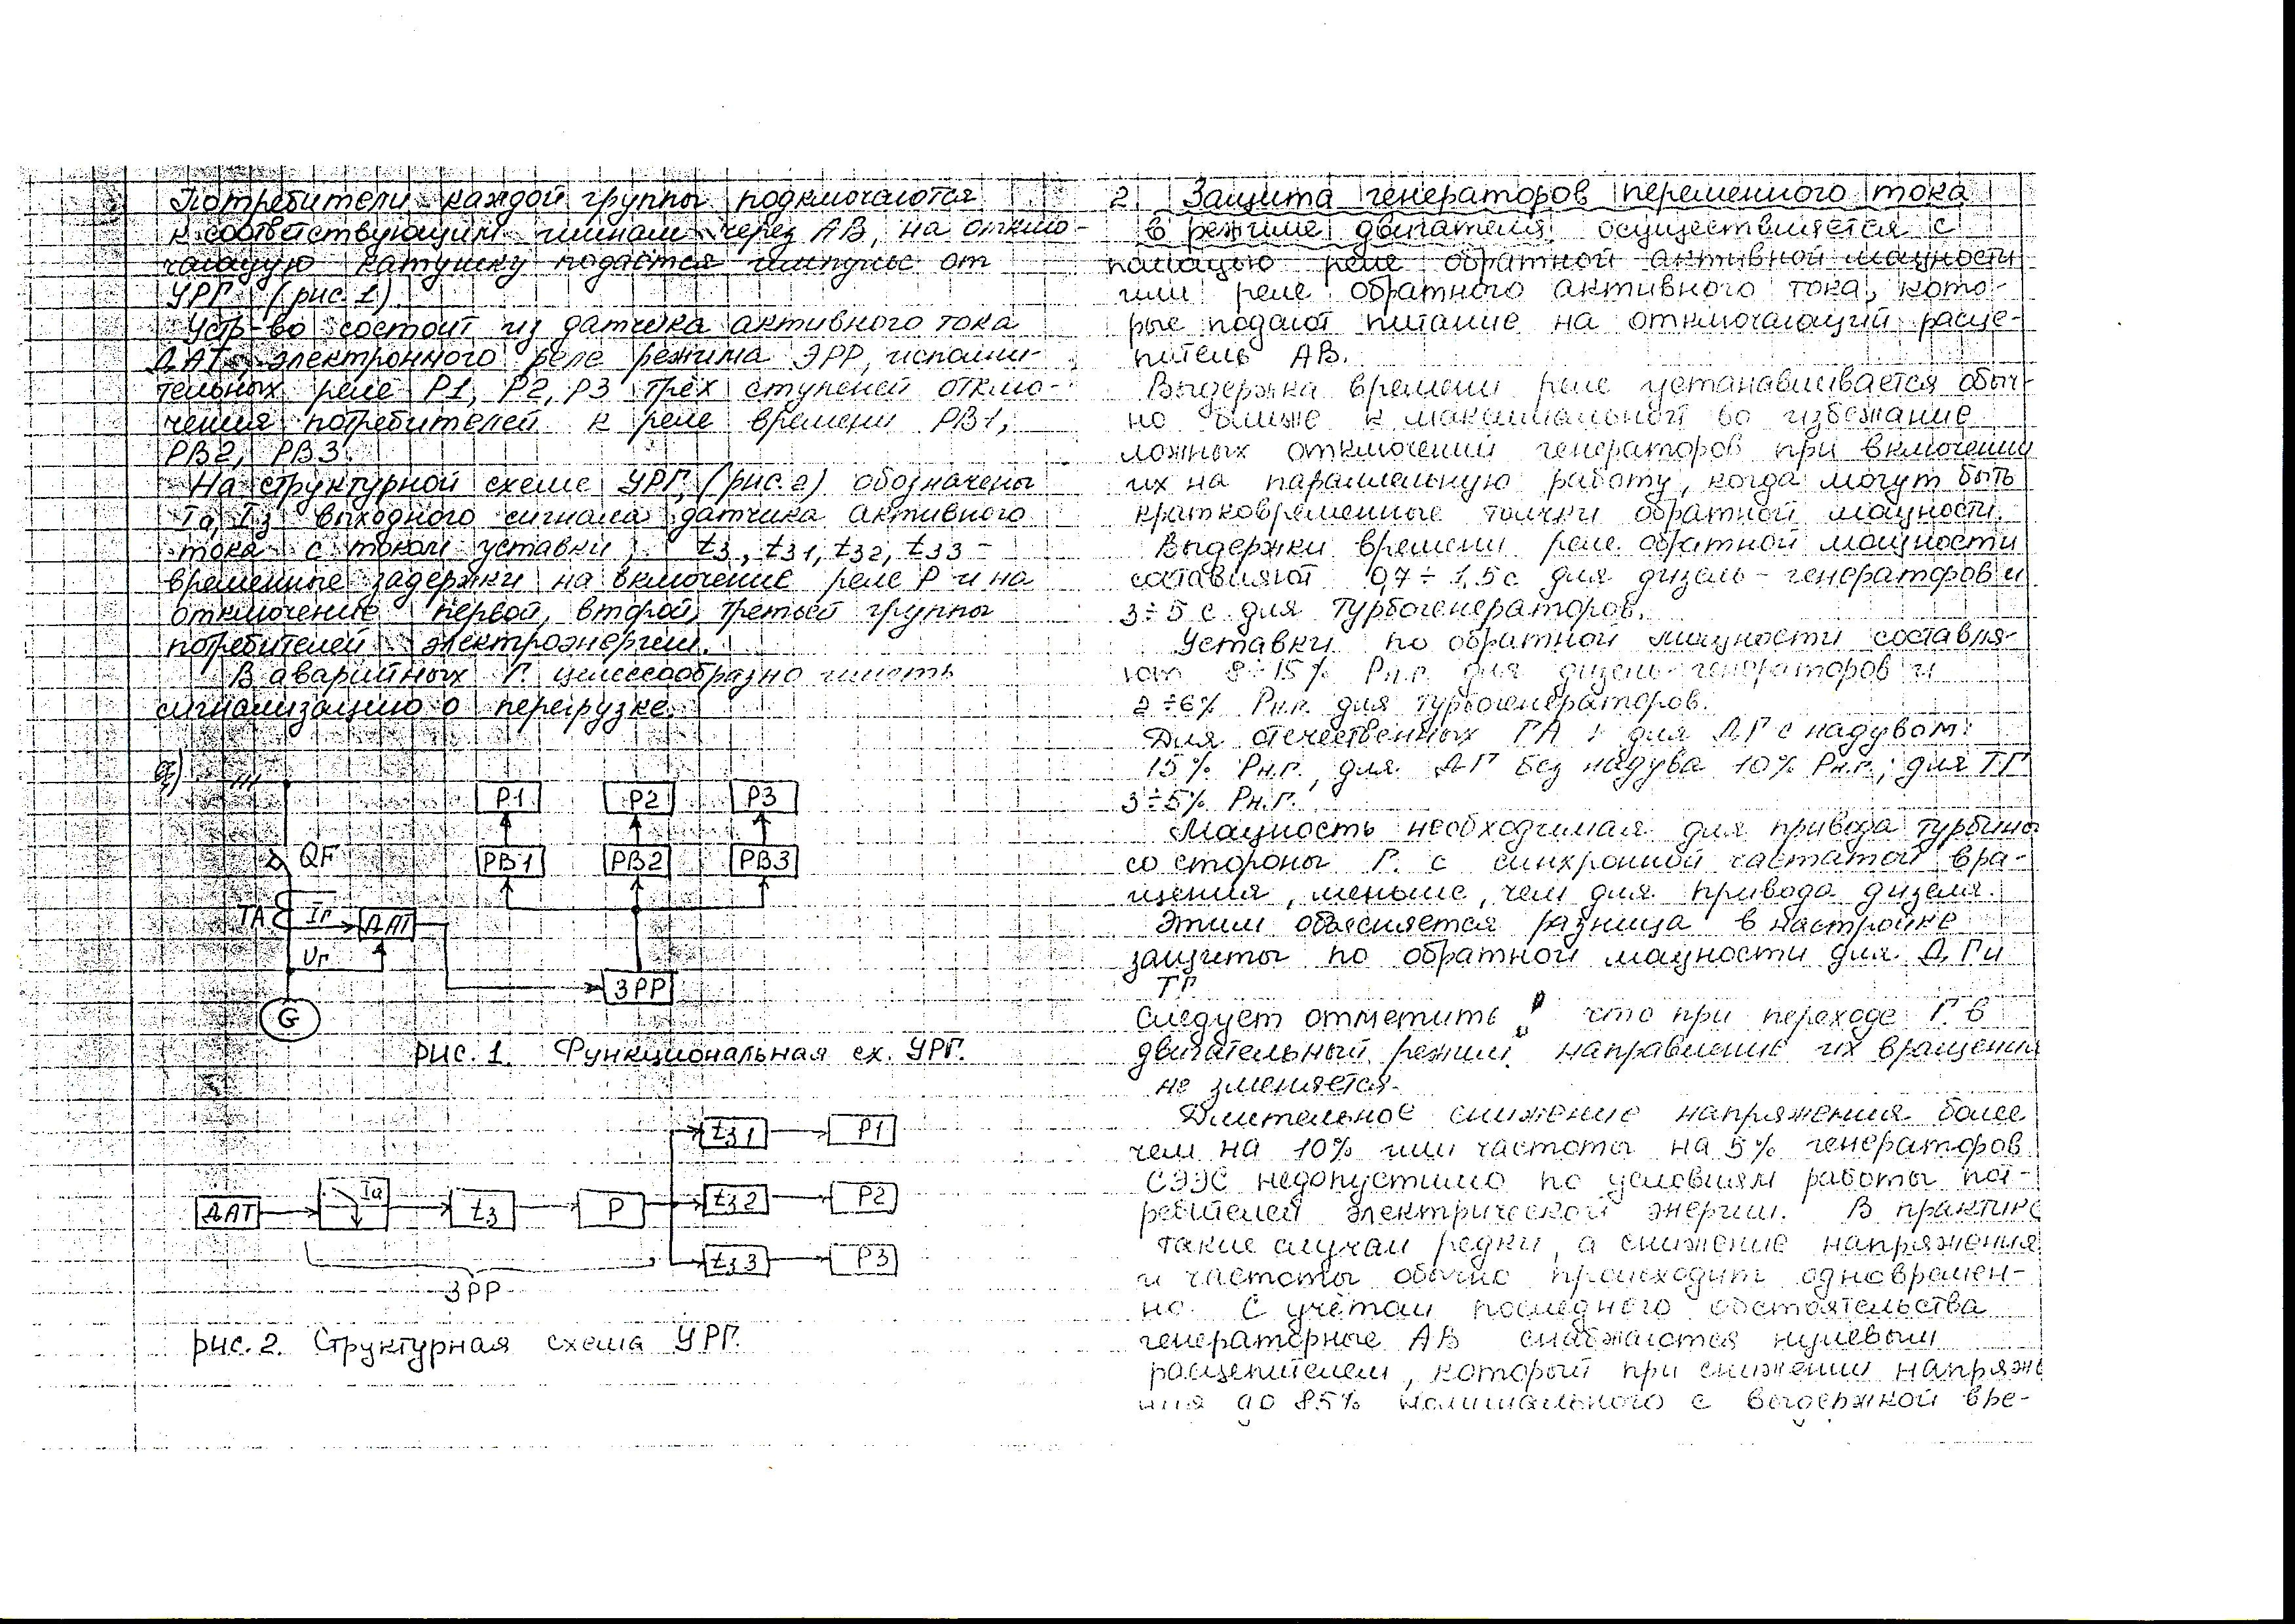 Потребители каждой группы подключаются
к соответствующим шинам через АВ, на отклю-
чающую катушку подаётся импульс от
УРГ (рис. 1)
Устр-во состоит из датчика активного тока
ДАТ, электронного реле режима ЭРР, исполни-
тельных реле Р1, Р2, Р3 трёх ступеней отклю-
чения потребителей к реле времени РВ1,
РВ2, РВ3.
На структурной схеме УРГ (рис. 2) обозначены
Iа, Iз выходного сигнала датчика активного
тока с током уставки, tз, tз1, tз2, tз3 -
временные задержки на включение реле Р и на
отключение первой, второй, третьей группы
потребителей электроэнергии.
В аварийных Г. целесообразно иметь
сигнализацию о перегрузке.
а)
Р1 Р2 Р3
QF РВ1 РВ2 РВ3
ТА Iг ДАТ
Uг
ЭРР
G
рис. 1. Функциональная сх. УРГ.
tз1 Р1
ДАТ Iа tз Р tз2 Р2
tз3 Р3
ЭРР
рис. 2. Структурная схема УРГ.
2. Защита генераторов переменного тока
в режиме двигателя осуществляется с
помощью реле обратной активной мощности
или реле обратного активного тока, кото-
рые подают питание на отключающий расце-
питель АВ.
Выдержка времени реле устанавливается обыч-
но ближе к максимальной во избежание
ложных отключений генераторов при включении
их на параллельную работу, когда могут быть
кратковременные толчки обратной мощности.
Выдержки времени реле обратной мощности
составляют 0,7÷1,5с для дизель-генераторов и
3÷5 с для турбогенераторов.
Уставки по обратной мощности составля-
ют 8÷15% Рн.г. для дизель-генераторов и
2÷6% Рн.г. для турбогенераторов.
Для отечественных ГА : для ДГ с надувом:
15% Рн.г., для ДГ без надува 10% Рн.г.; для ТГ
3÷5% Рн.г.
Мощность необходимая для привода турбины
со стороны Г. с синхронной частатой вра-
щения, меньше, чем для привода дизеля.
Этим объясняется разница в настройке
защиты по обратной мощности для ДГ и
ТГ.
Следует отметить, что при переходе Г. в
двигательный режим направление их вращения
не зменяется.
Длительное снижение напряжения более
чем на 10% или частоты на 5% генераторов
СЭЭС недопустимо по условиям работы пот-
ребителей электрической энергии. В практике
такие случаи редки, а снижение напряжения
и частоты обычно происходит одновремен-
но. С учётом последнего обстоятельства
генераторные АВ снабжаются нулевым
расцепителем, который при снижении напряже
ния до 85% номинального с выдержкой вре-